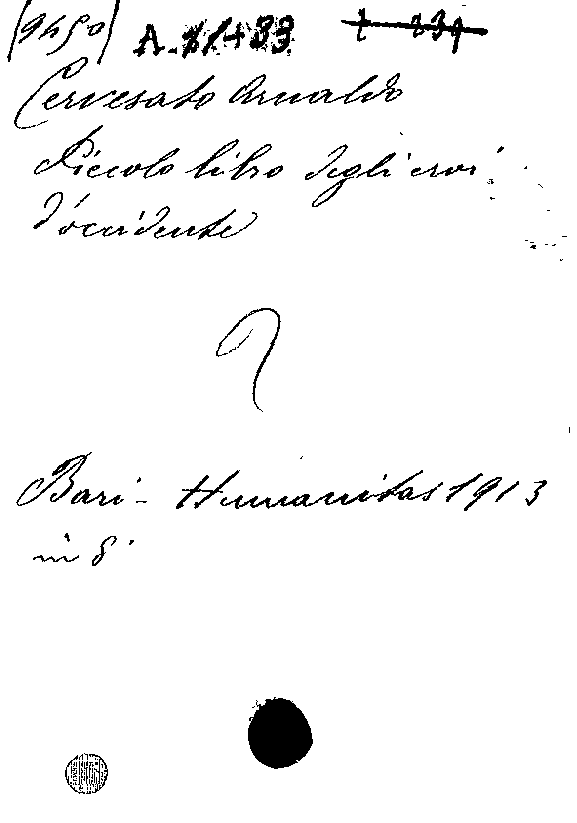 (9450)
Cervesato Arnaldo
Piccolo libro degli eroi
d'occidente
Bari - Humanitas 1913
in 8°